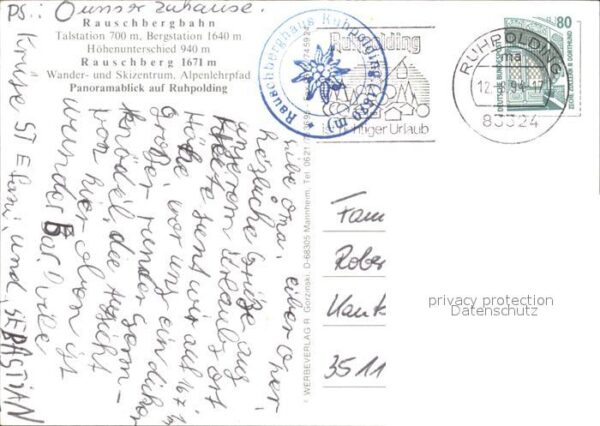 PS: O unser zuhause.
Rauschbergbahn
Talstation 700 m, Bergstation 1640 m
Höhenunterschied 940 m
Rauschberg 1671 m
Wander- und Skizentrum, Alpenlehrpfad
Panoramablick auf Ruhpolding
Rauschberghaus Ruhpolding 1670 m
Ruhpolding
Urlaub
RUHPOLDING
ma
83324
80
DEUTSCHE BUNDESPOST
Liebe Oma, lieber Oper,
herzliche Grüße aus
unserem Urlaubsort
Heute sind wir auf 1671
Höhe, vor uns ein dicker
großer runder Germ-
knödel, die Aussicht
von hier oben ist
wunderbar. Viele
Krüse STEFani, und, SEBASTIAN
© WERBEVERLAG R. Gorzinski, D-68305 Mannheim, Tel. 0621
Fam
Rober
Kant
3511
privacy protection
Datenschutz